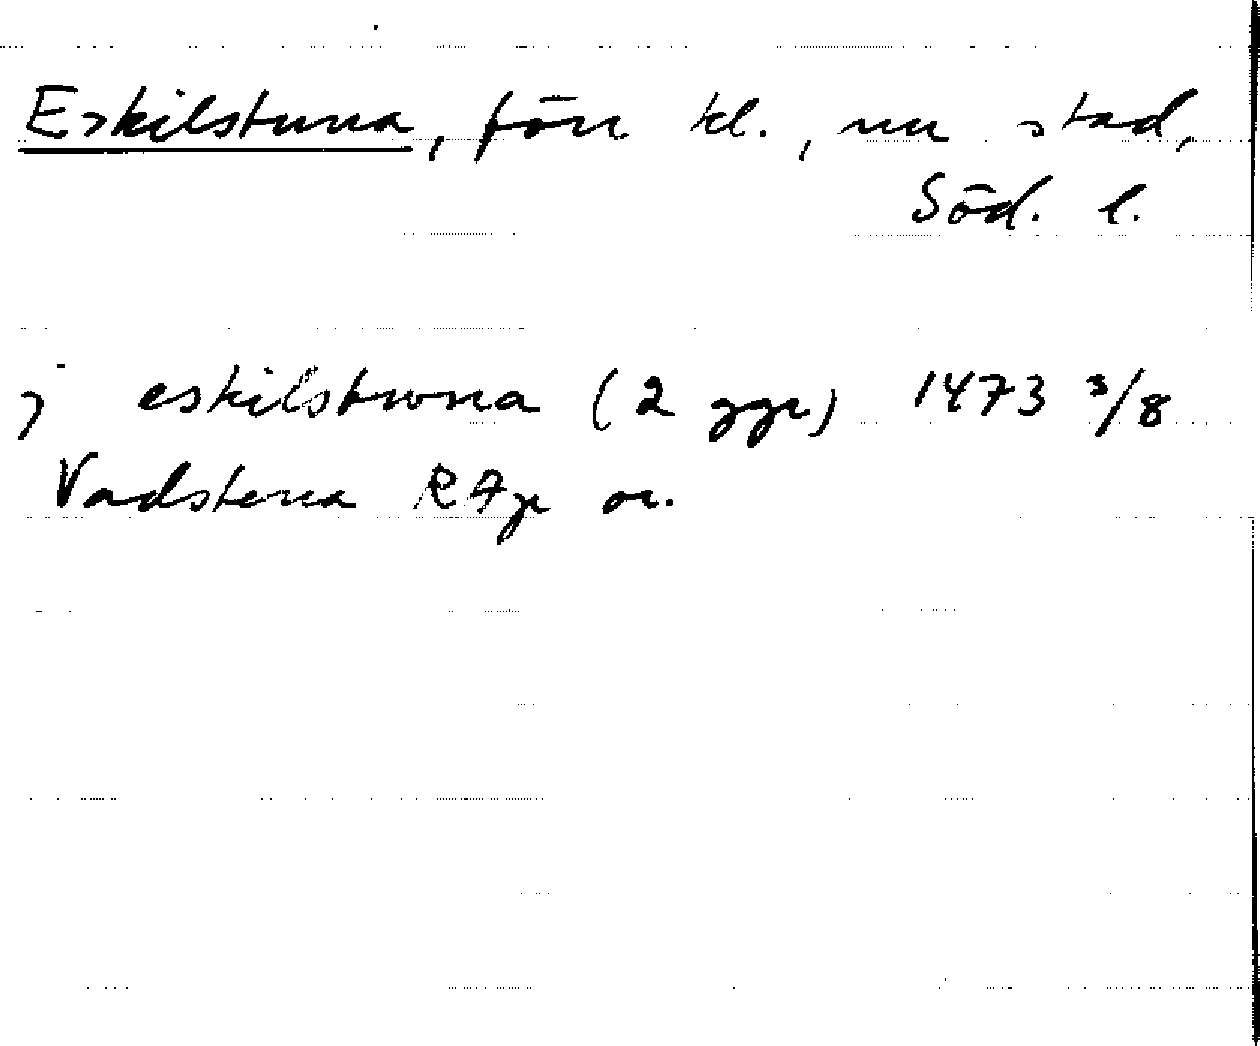 Eskilstuna, förr kl., nu stad,
Söd. l.
j eskilstwna (2 ggr) 1473 3/8
Vadstena RApp or.